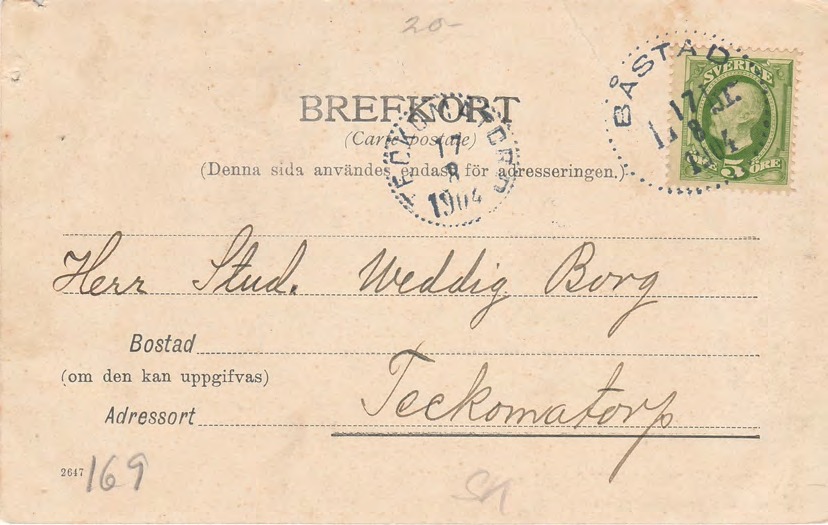 20-
BREFKORT
(Carte postale)
(Denna sida användes endast för adresseringen.)
BÅSTAD
17
8
1904
SVERIGE
5 ÖRE
TECKOMATORP
17
8
1904
Herr Stud. Weddig Borg
Bostad
(om den kan uppgifvas)
Teckomatorp
Adressort
2647
169